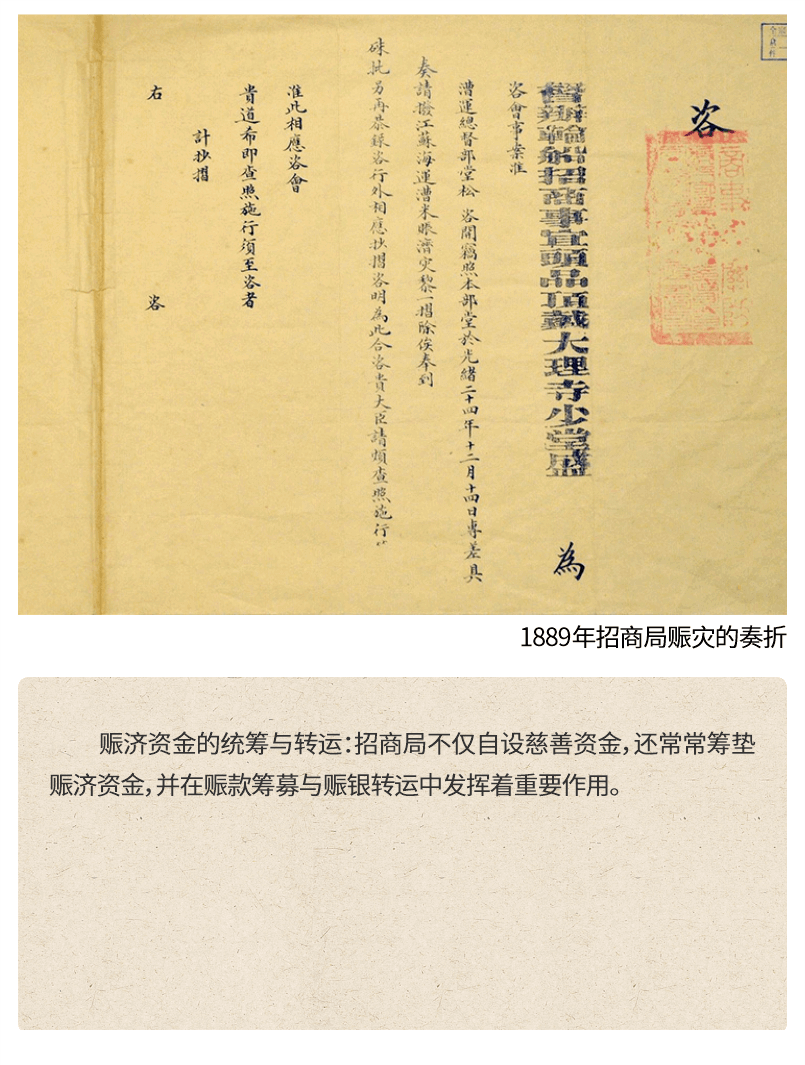 咨
督辦輪船招商事宜頭品頂戴大理寺少堂盛 為
咨會事案准
漕運總督部堂松 咨開竊照本部堂於光緒二十四年十二月十四日專差具
奏請撥江蘇海運漕米賑濟灾黎一摺除俟奉到
硃批另再恭錄咨行外相應抄摺咨明為此合咨貴大臣請煩查照施行
准此相應咨會
貴道希即查照施行須至咨者
計抄摺
右 咨
1889年招商局赈灾的奏折
赈济资金的统筹与转运：招商局不仅自设慈善资金，还常常筹垫
赈济资金，并在赈款筹募与赈银转运中发挥着重要作用。